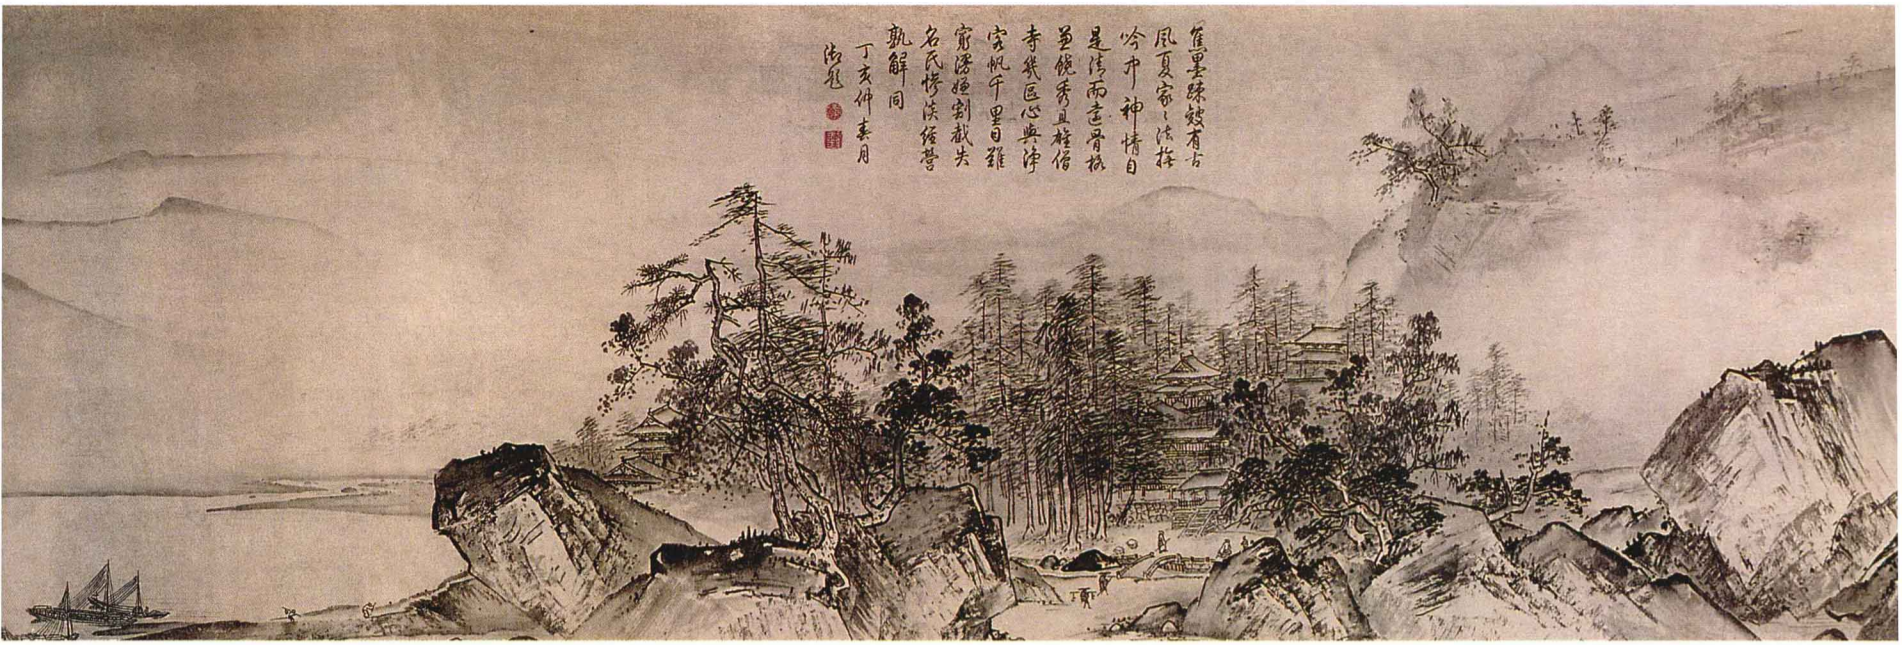 蕉墨踈皴有古
風夏家〻法撫
吟中神情自
是清而遠骨格
並饒秀且雄僧
寺幾區心與淨
客帆千里目難
窮漫嫌割截失
名氏慘淡經營
孰解同
丁亥仲春月
御題